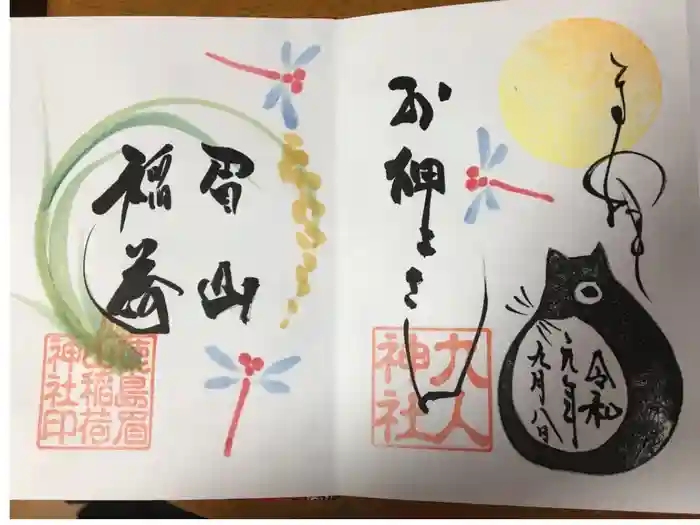 お狸よさん
九人
神社
令和
元年
九月八日
眉山
稲荷
鹿島眉
山稲荷
神社印